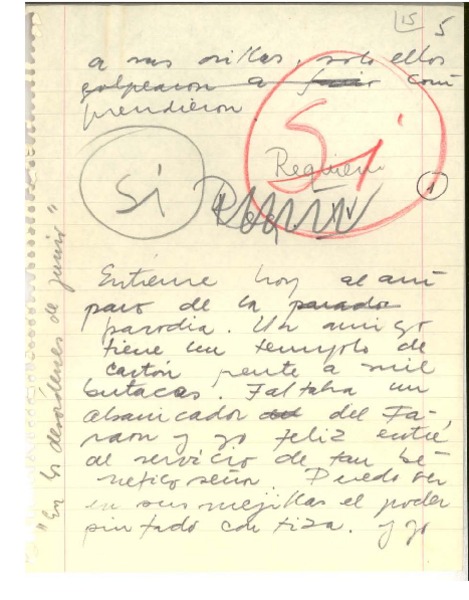 15 5
a sus orillas, solo ellos
golpearon a com
prendieron
Si
Sí
Requiem
1
Entierne hoy al am
paro de la parado
parodia. Un amigo
tiene un templo de
cartón frente a mil
butacas. Faltaba un
abanicador del Fa-
raon y yo feliz entré
al servicio de tan be-
néfico señor. Puedo ver
en sus mejillas el poder
pintado con tiza. y yo
"En los desórdenes de junio"